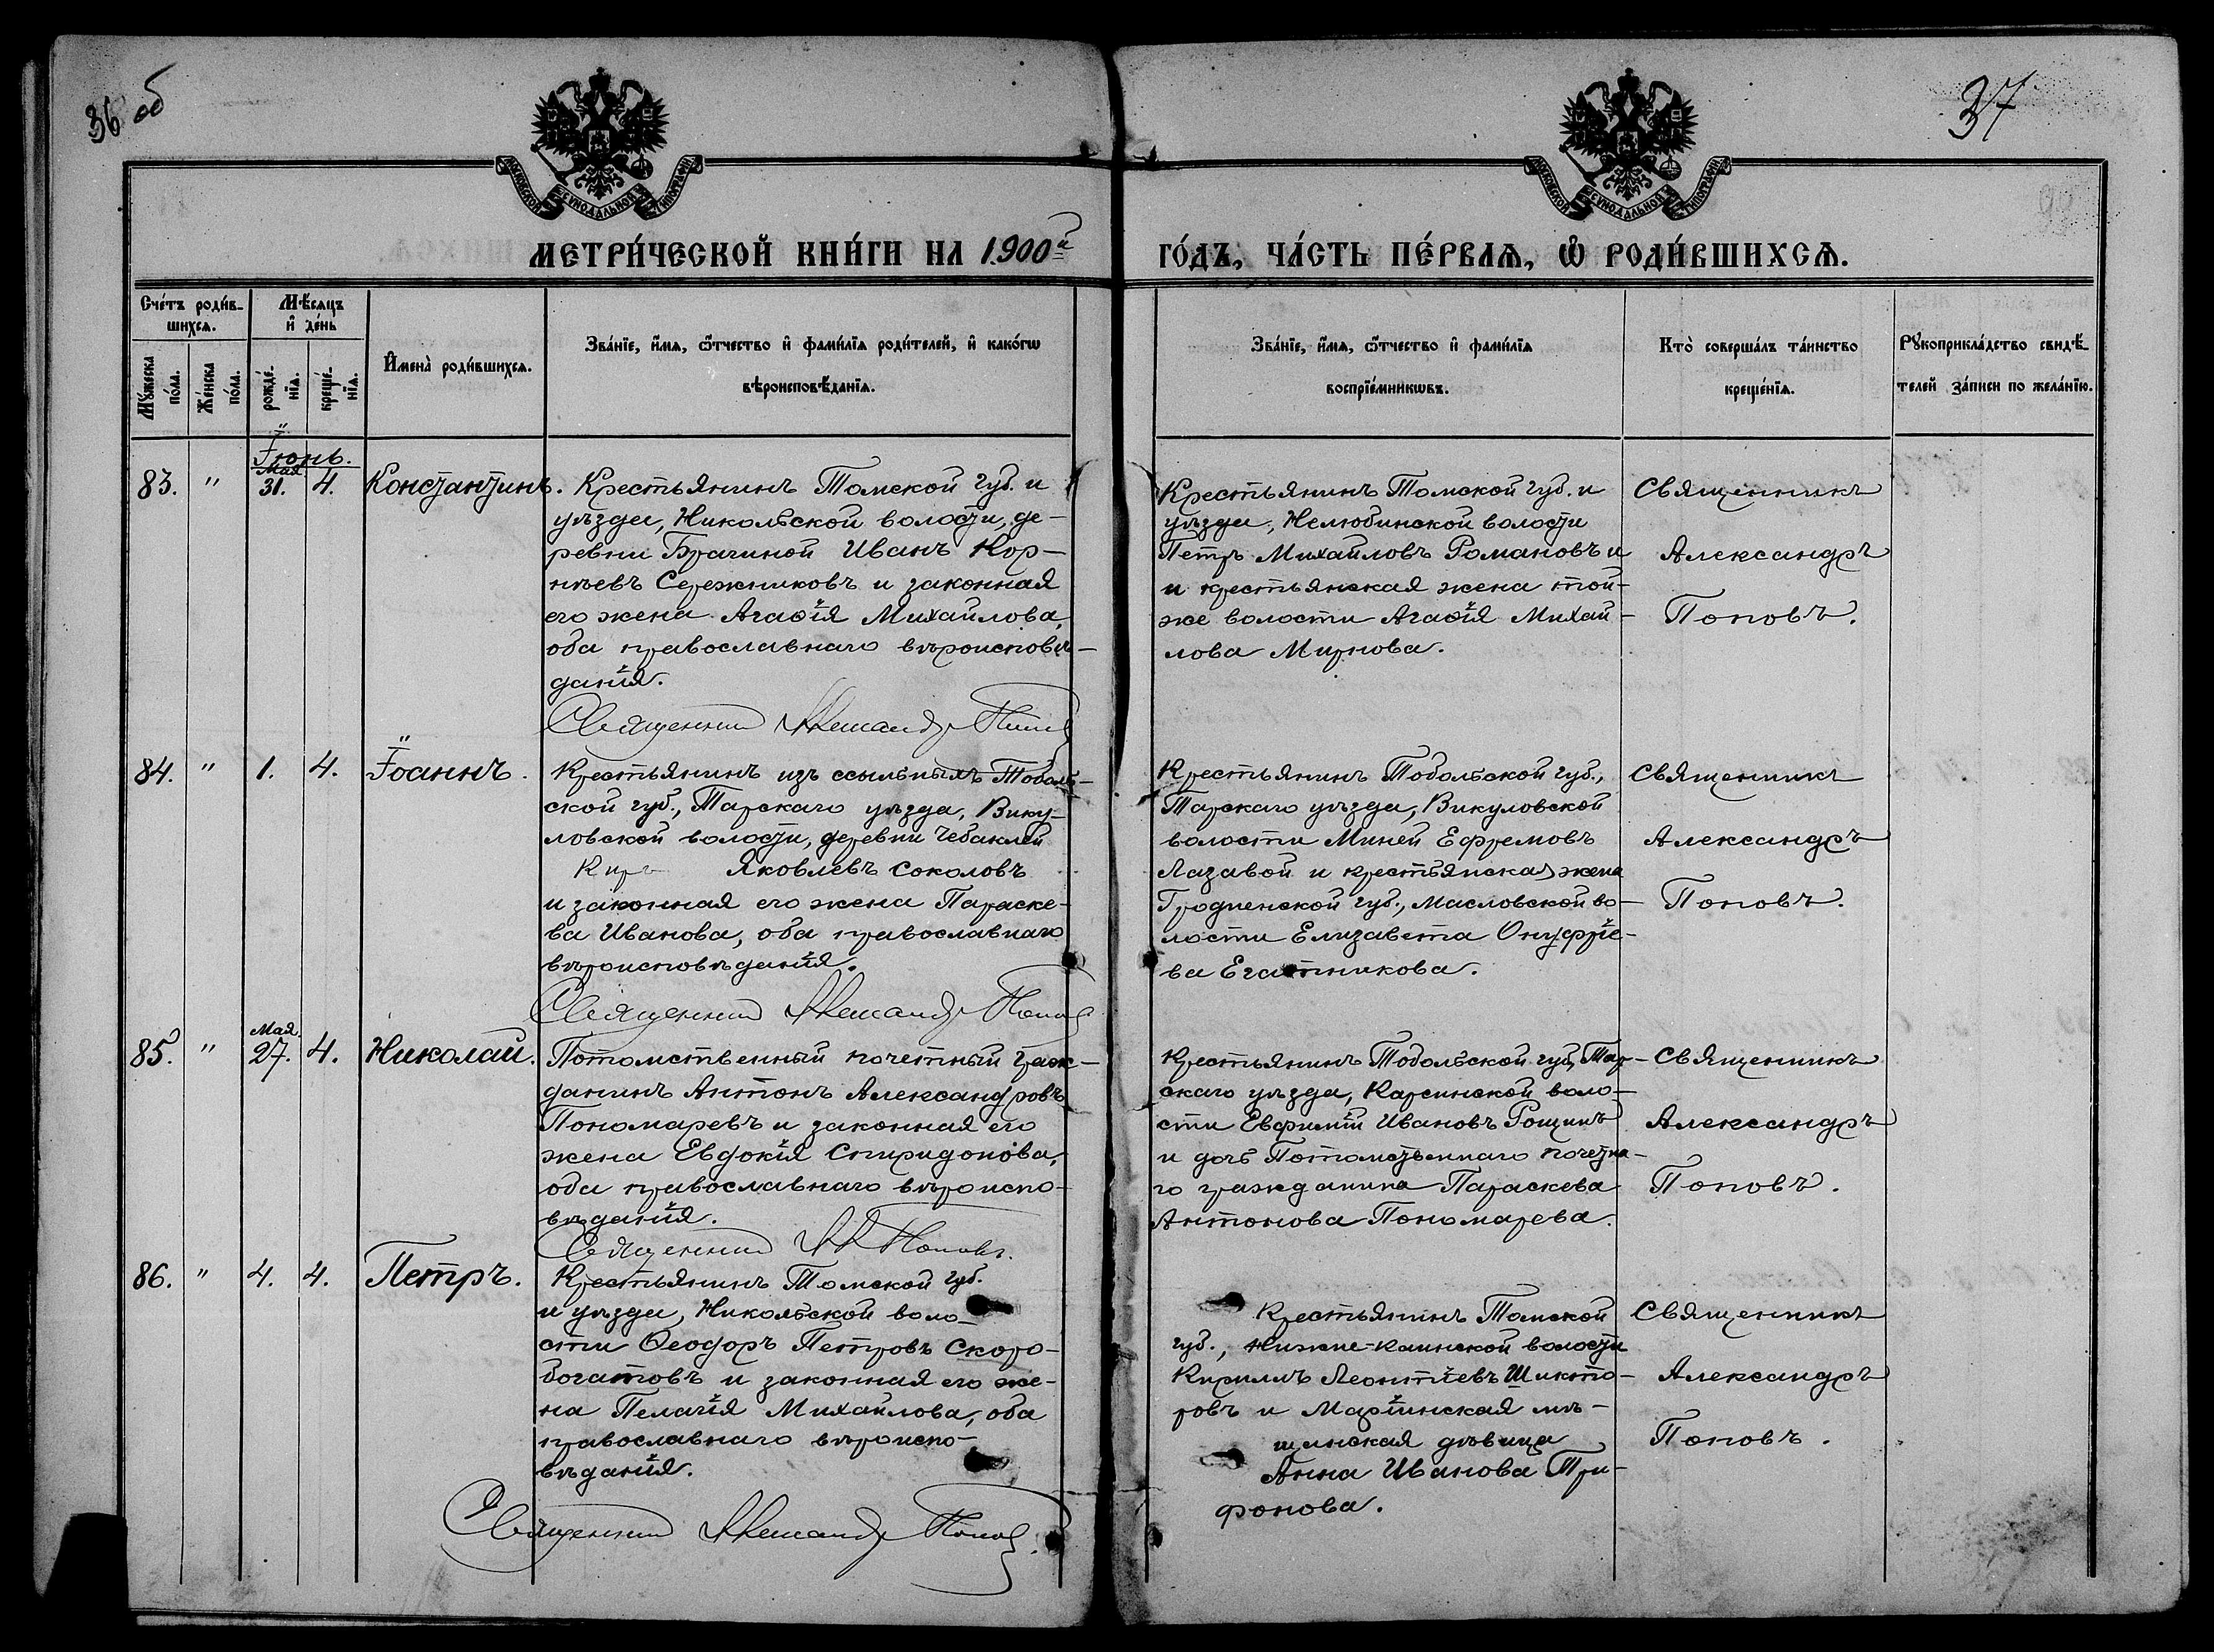 36 об
37
МОСКОВСКОЙ СѴНОДАЛЬНОЙ ТИПОГРАФІИ
МОСКОВСКОЙ СѴНОДАЛЬНОЙ ТИПОГРАФІИ
МЕТРИ́ЧЕСКОЙ КНИ́ГИ НА 1900й
ГО́ДЪ, ЧА́СТЬ ПЕ́РВАѦ, Ѡ҆ РОДИ́ВШИХСѦ.
Сче́тъ роди́в-
шихсѧ.
Мѣ́сяцъ
и҆ де́нь
Мꙋ́жеска
по́ла.
Же́нска
по́ла.
рожде́-
нїѧ.
креще́-
нїѧ.
И҆мена̀ роди́вшихсѧ.
Зва́нїе, и҆́мѧ, ѻ҆́тчество и҆ фами́лїѧ роди́телей, и҆ како́гѡ
вѣроисповѣ́данїѧ.
Зва́нїе, и҆́мѧ, ѻ҆́тчество и҆ фами́лїѧ
воспрїе́мникѡвъ.
Кто̀ соверша́лъ та́инство
креще́нїѧ.
Рꙋкоприкла́дство свидѣ́-
телей за́писи по жела́нїю.
Іюнь.
83. " Мая 31. 4. Константинъ.
Крестьянинъ Томской губ. и
уѣзда, Никольской волости, де-
ревни Брагиной Иванъ Кор-
нѣевъ Сережниковъ и законная
его жена Агафія Михайлова,
оба православнаго вѣроисповѣ-
данія.
Священник Александр Попов
Крестьянинъ Томской губ. и
уѣзда, Нелюбинской волости
Петръ Михайловъ Романовъ и
и крестьянская жена той-
же волости Агафія Михай-
лова Мирнова.
Священникъ
Александръ
Поповъ.
84. " 1. 4. Іоаннъ.
Крестьянинъ изъ ссыльныхъ Тоболь-
ской губ., Тарскаго уѣзда, Вику-
ловской волости, деревни Чебаклей
Киръ Яковлевъ Соколовъ
и законная его жена Параске-
ва Иванова, оба православнаго
вѣроисповѣданія.
Священник Александр Попов
Крестьянинъ Тобольской губ.,
Тарскаго уѣзда, Викуловской
волости Миней Ефремовъ
Лазавой и крестьянская жена
Гродненской губ., Масловской во-
лости Елизавета Онуфріе-
ва
Священникъ
Александръ
Поповъ.
85. " Мая 27. 4. Николай.
Потомственный почетный граж-
данинъ Антонъ Александровъ
Пономаревъ и законная его
жена Евдокія Спиридонова,
оба православнаго вѣроиспо-
вѣданія.
Священник Ал Поповъ.
Крестьянинъ Тобольской губ, Тар-
скаго уѣзда, Карсинской воло-
сти Евфимій Ивановъ Рощинъ
и дочь Потомственнаго почетна-
го гражданина Параскева
Антонова Пономарева.
Священникъ
Александръ
Поповъ.
86. " 4. 4. Петръ.
Крестьянинъ Томской губ.
и уѣзда, Никольской воло-
сти Ѳеодоръ Петровъ Скоро-
богатовъ и законная его же-
на Пелагія Михайлова, оба
православнаго вѣроиспо-
вѣданія.
Священник Александр Попов.
Крестьянинъ Томской
губ., Нижне-Каинской волости
Кириллъ Леонтіевъ Шикто-
ровъ и Маріинская мѣ-
щанская дѣвица
Анна Иванова Три-
фонова.
Священникъ
Александръ
Поповъ.